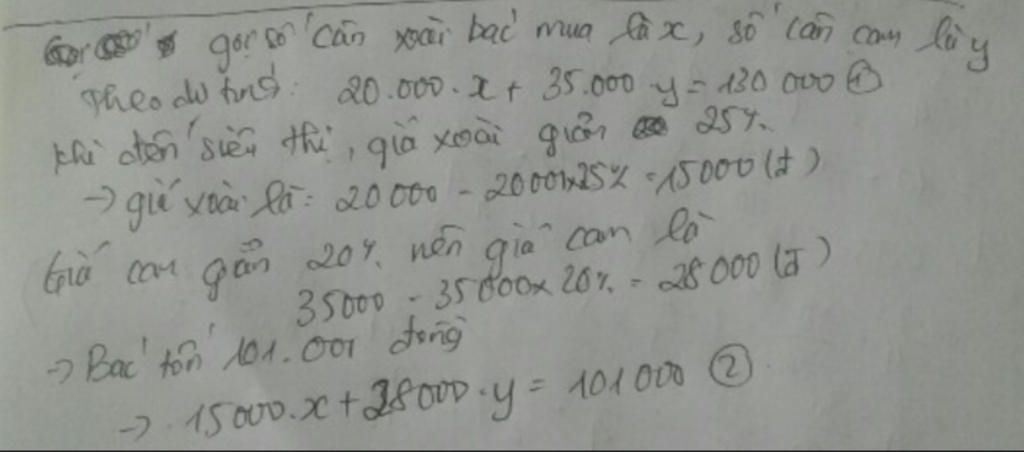 gọi số cân xoài bác mua là x, số cân cam là y
Theo dự tính: 20.000.x + 35.000.y = 130 000 ①
Khi đến siêu thị, giá xoài giảm 25%
→ giá xoài là: 20 000 - 20001x25% = 15000 (đ)
Giá cam giảm 20% nên giá cam là
35000 - 35000x 20% = 28000 (đ)
→ Bác tốn 101.001 đồng
→ 15000.x + 28000.y = 101 000 ②